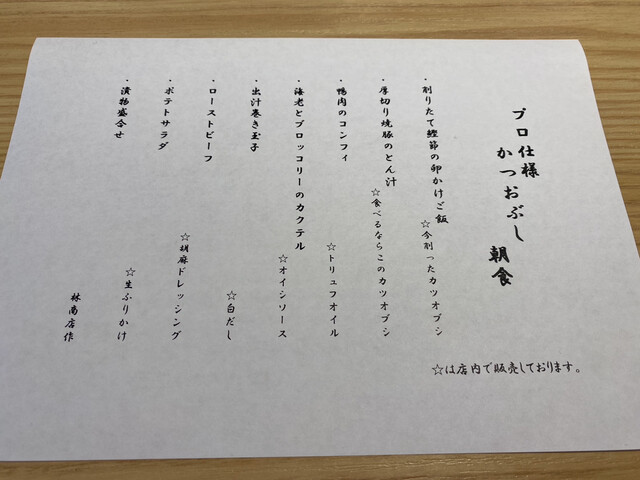 プロ仕様 かつおぶし 朝食
・削りたて鰹節の卵かけご飯 ☆今削ったカツオブシ
・厚切り焼豚のとん汁 ☆食べるならこのカツオブシ
・鴨肉のコンフィ ☆トリュフオイル
・海老とブロッコリーのカクテル ☆オイシソース
・出汁巻き玉子 ☆白だし
・ローストビーフ
・ポテトサラダ ☆胡麻ドレッシング
・漬物盛合せ ☆生ふりかけ
林商店作
☆は店内で販売しております。